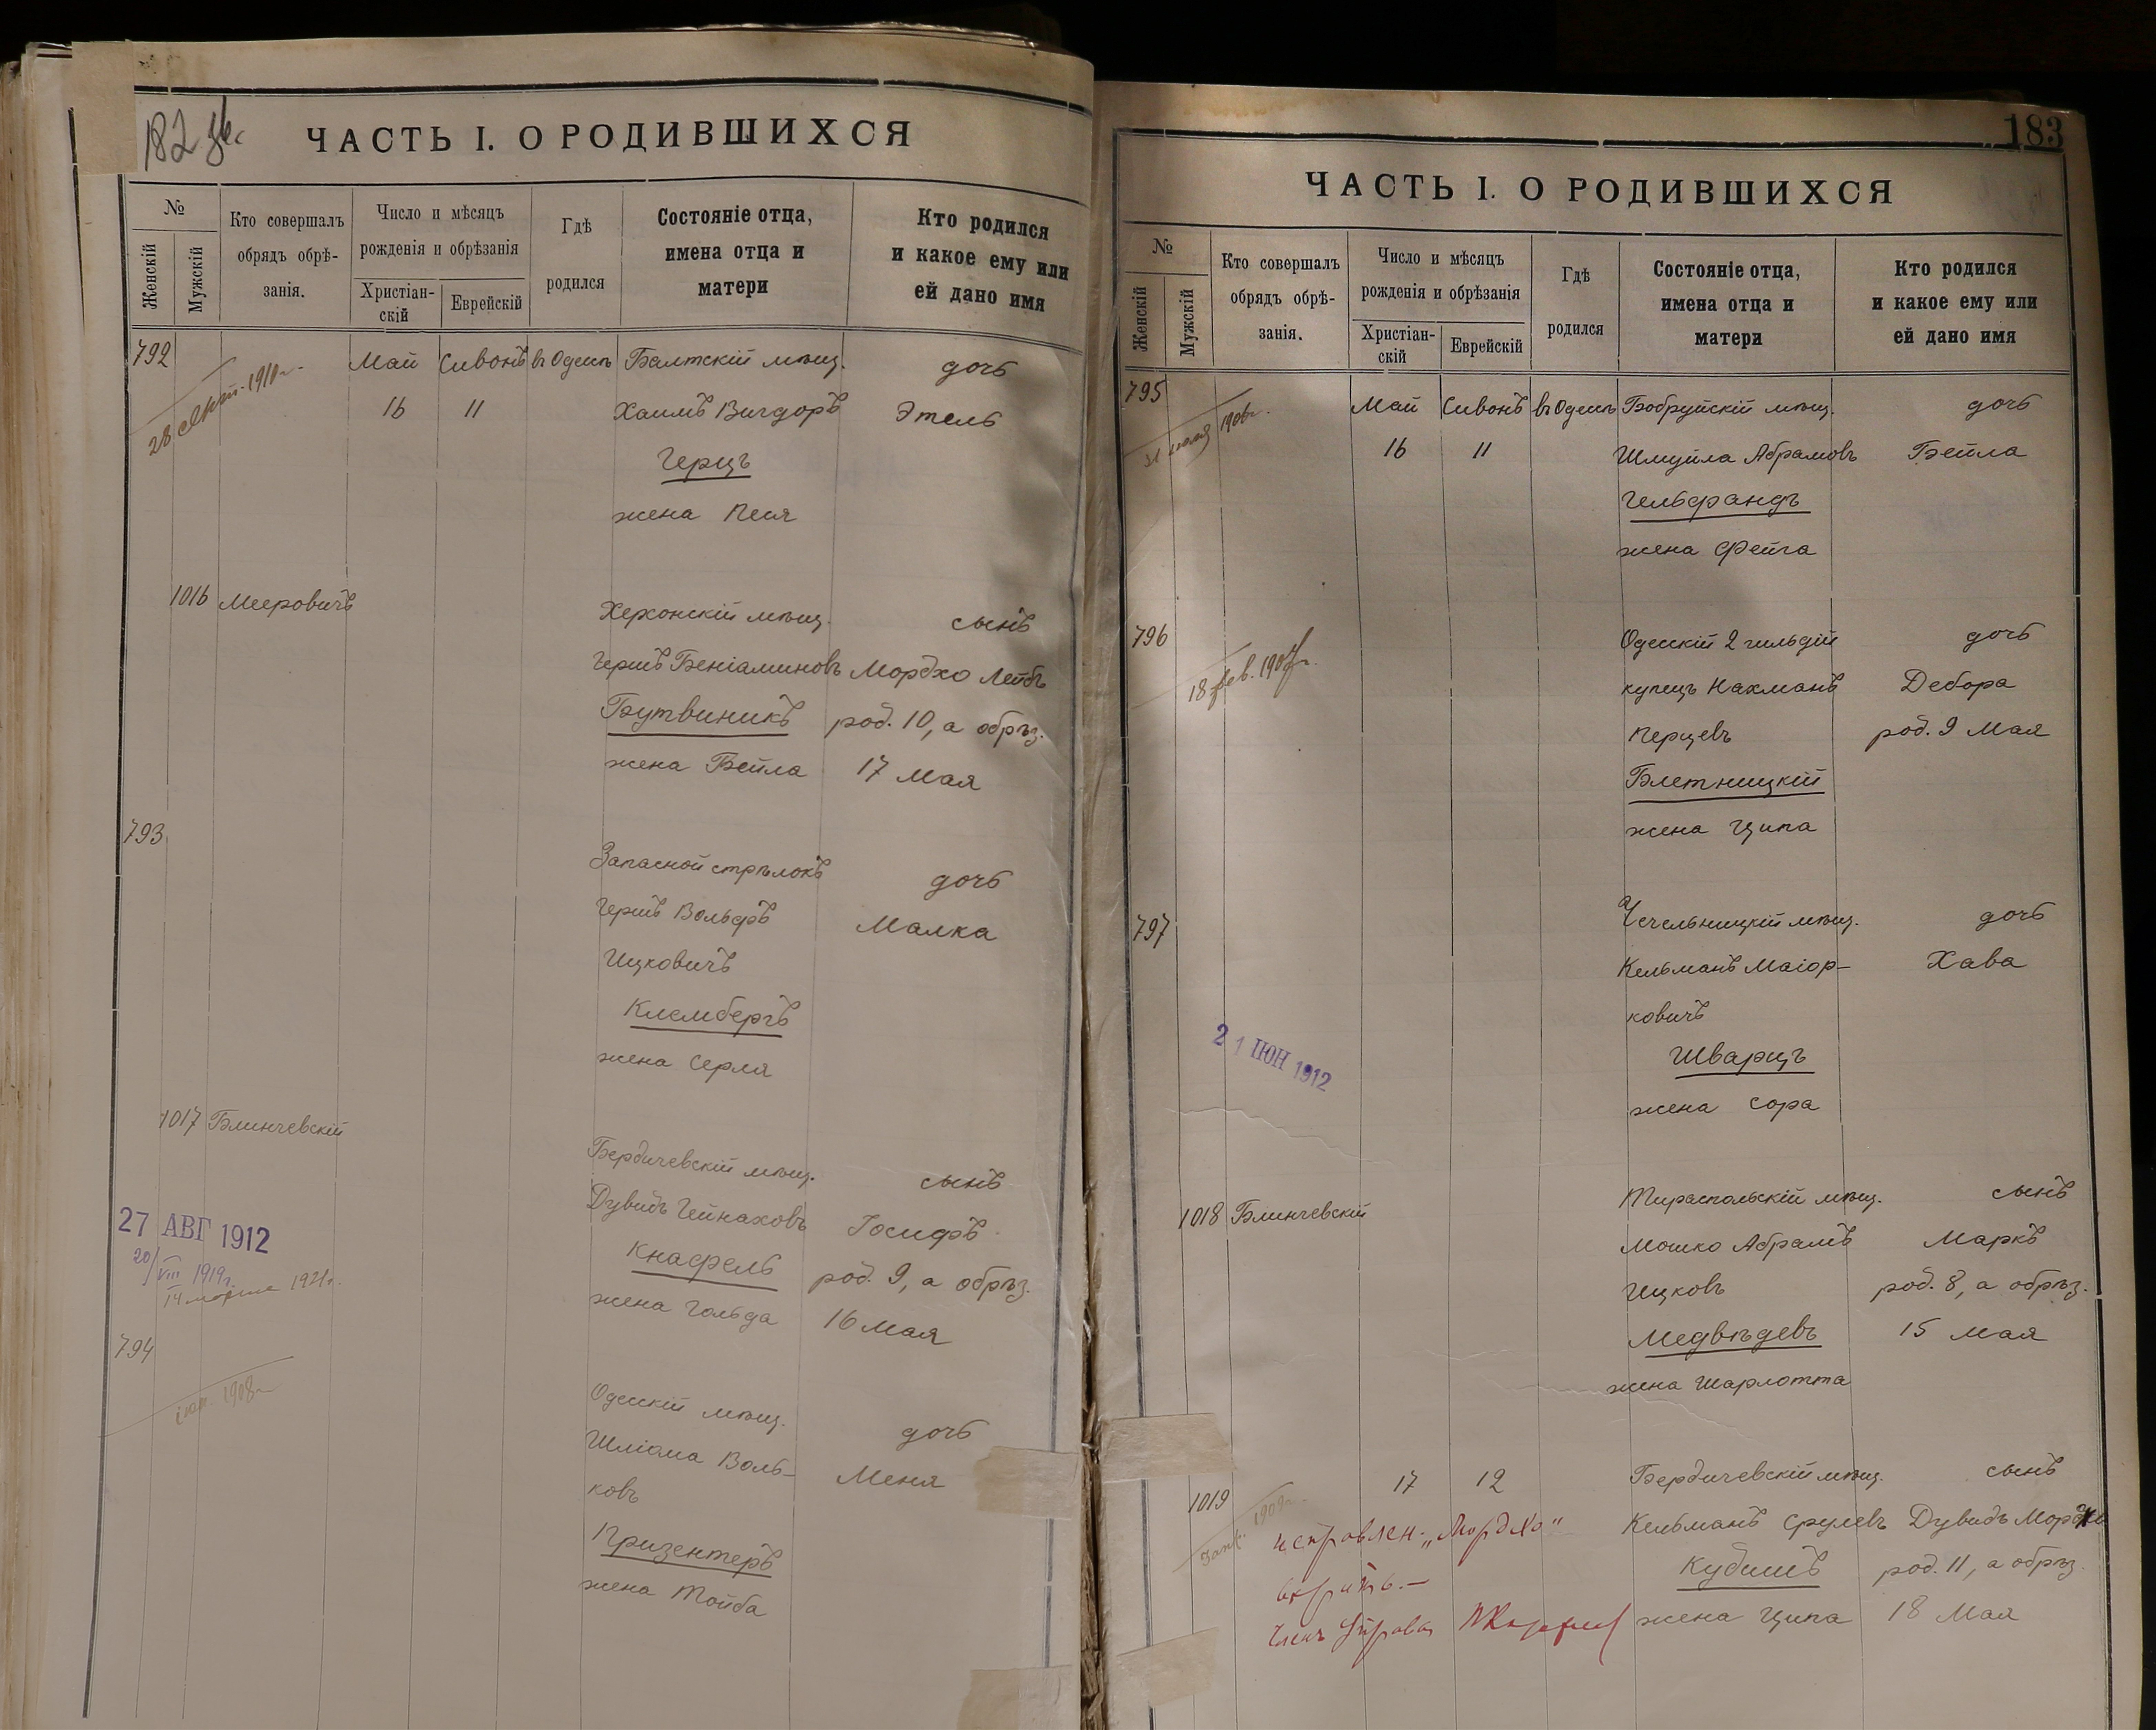 182
ЧАСТЬ I. О РОДИВШИХСЯ
№
Женскій
Мужскій
Кто совершалъ
обрядъ обрѣ-
занія.
Число и мѣсяцъ
рожденія и обрѣзанія
Христіан-
скій
Еврейскій
Гдѣ
родился
Состояніе отца,
имена отца и
матери
Кто родился
и какое ему или
ей дано имя
792 Май Сивонъ въ Одессѣ Балтскій мѣщ. дочь
28 1910 г.
16 11 Хаимъ Вигдоръ Этель
Герцъ
жена Песя
1016 Мееровичъ Херсонскій мѣщ. сынъ
Гершъ Беніаминовъ Мордхо Лейбъ
Бутвиникъ род. 10, а обрѣз.
жена Бейла 17 Мая
793
Запасной стрѣлокъ дочь
Гершъ Вольфъ Малка
Ицковичъ
Клембергъ
жена Серля
1017 Блинчевскій
Бердичевскій мѣщ. сынъ
Дувидъ Гейнаховъ Іосифъ
27 АВГ 1912
20/VIII 1919 г.
14 марта 1921 г.
Кнафель род. 9, а обрѣз.
жена Гольда 16 Мая
794
1908 г.
Одесскій мѣщ. дочь
Шліома Воль- Меня
ковъ
Призентеръ
жена Тойба
183
ЧАСТЬ I. О РОДИВШИХСЯ
№
Женскій
Мужскій
Кто совершалъ
обрядъ обрѣ-
занія.
Число и мѣсяцъ
рожденія и обрѣзанія
Христіан-
скій
Еврейскій
Гдѣ
родился
Состояніе отца,
имена отца и
матери
Кто родился
и какое ему или
ей дано имя
795 Май Сивонъ въ Одессѣ Бобруйскій мѣщ. дочь
31 1906 г.
16 11 Шмуйла Абрамовъ Бейла
Гельфандъ
жена Фейга
796 Одесскій 2 гильдіи дочь
18 фев. 1907 г.
купецъ Нахманъ Дебора
Перцевъ род. 9 Мая
Блетницкій
жена Ципа
797 Чечельницкій мѣщ. дочь
Кельманъ Маіор- Хава
ковичъ
21 ІЮН 1912
Шварцъ
жена Сора
1018 Блинчевскій Тираспольскій мѣщ. сынъ
Мошко Абрамъ Маркъ
Ицковъ род. 8, а обрѣз.
Медвѣдевъ 15 Мая
жена Шарлотта
1019 17 12 Бердичевскій мѣщ. сынъ
1909 г.
исправлен. „Мордхо"
Кельманъ Срулевъ Дувидъ Мордхо
вѣрить.—
Кубишъ род. 11, а обрѣз.
Членъ Управы
жена Ципа 18 Мая